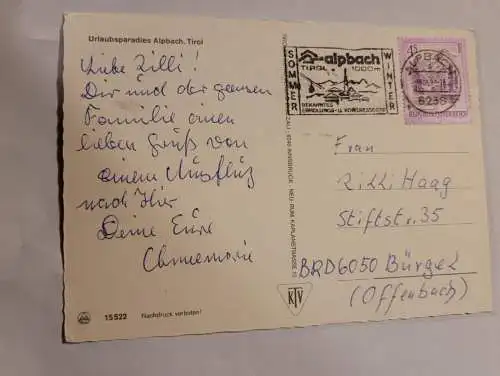 Urlaubsparadies Alpbach, Tirol
Liebe Zilli!
Dir und der ganzen
Familie einen
lieben Gruß von
einem Ausflug
nach hier
Deine Eure
Annemarie
15522 Nachdruck verboten!
SOMMER
alpbach
TIROL 1000m
WINTER
BEKANNTES
ERHOLUNGS- U. KONGRESSDORF
6236
REPUBLIK ÖSTERREICH
Frau
Zilli Haag
Stiftstr. 35
BRD 6050 Bürgel
(Offenbach)
KTV